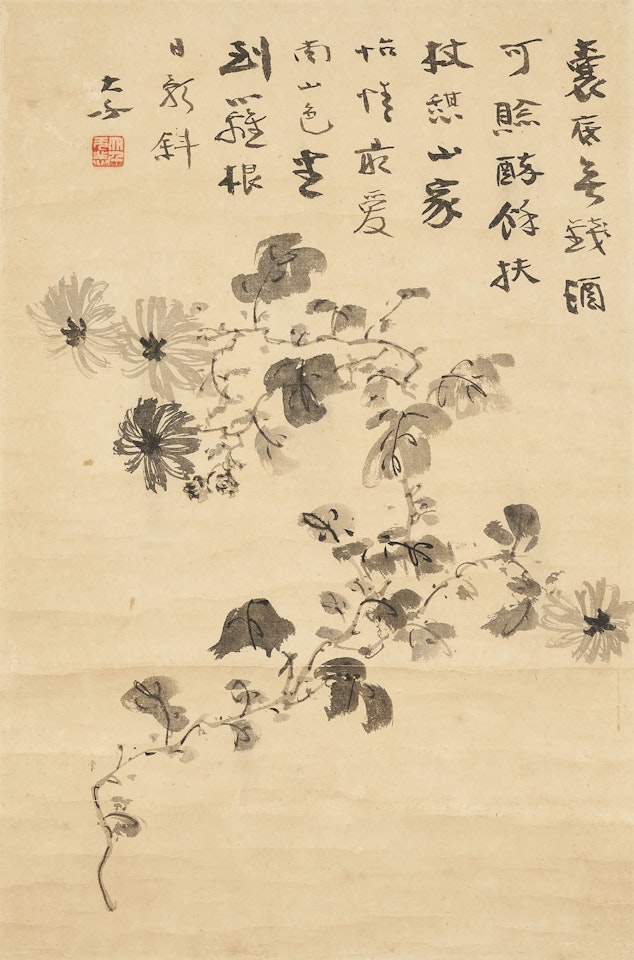 囊底無錢酒
可賒醉餘扶
杖憩山家
怡情最愛
南山色坐
到籬根
日影斜